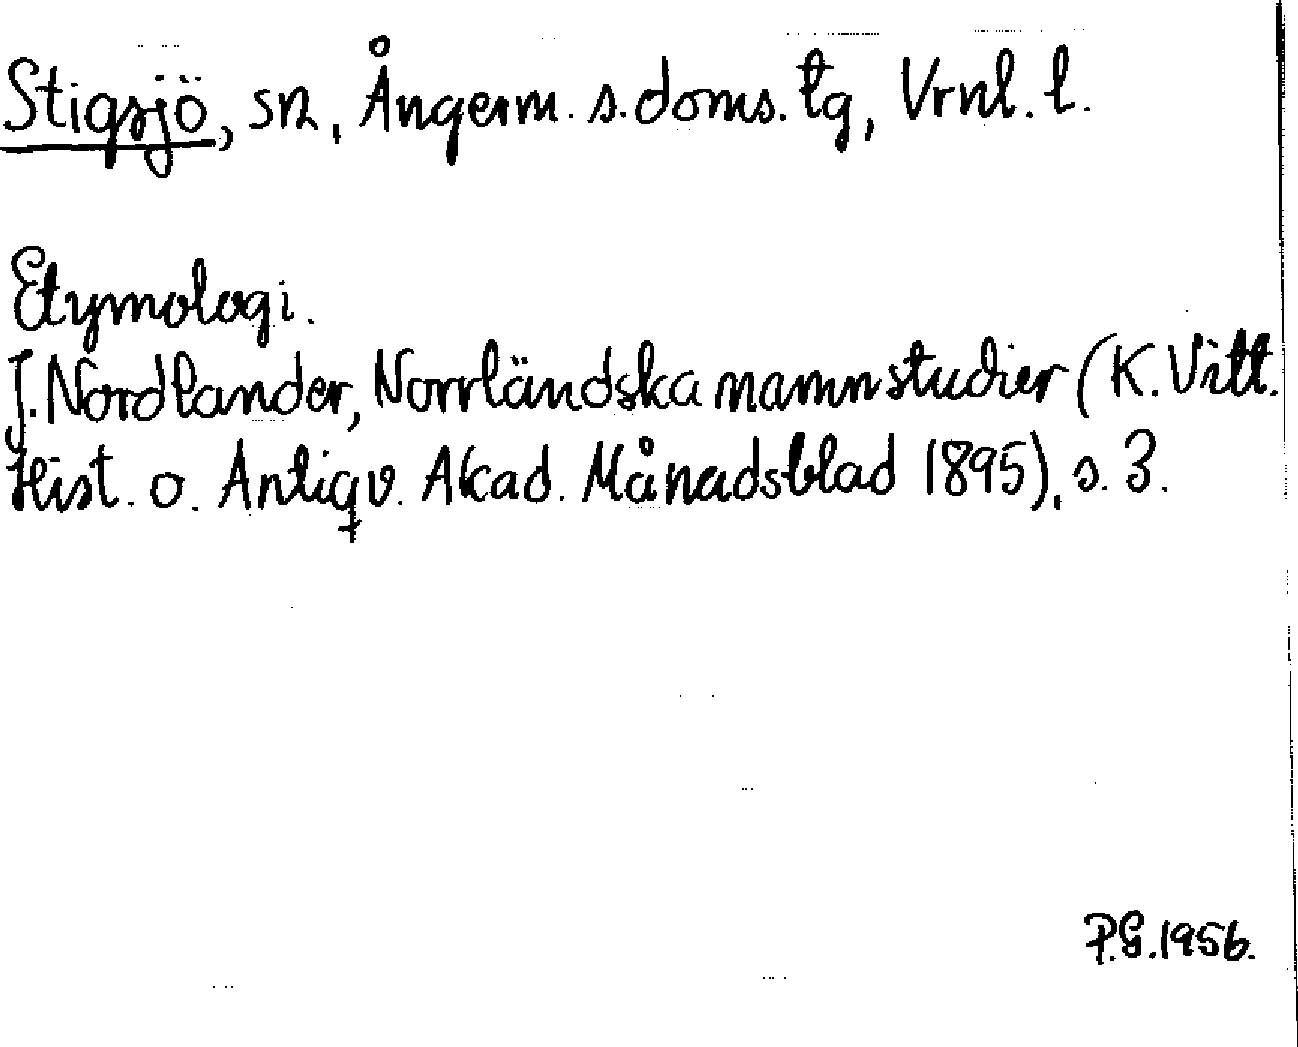 Stigsjö, sn, Ångerm. s. doms. tg, Vrnl. l.
Etymologi.
J. Nordlander, Norrländska namnstudier (K. Vitt.
Hist. o. Antiqv. Akad. Månadsblad 1895), s. 3.
P.G. 1956.